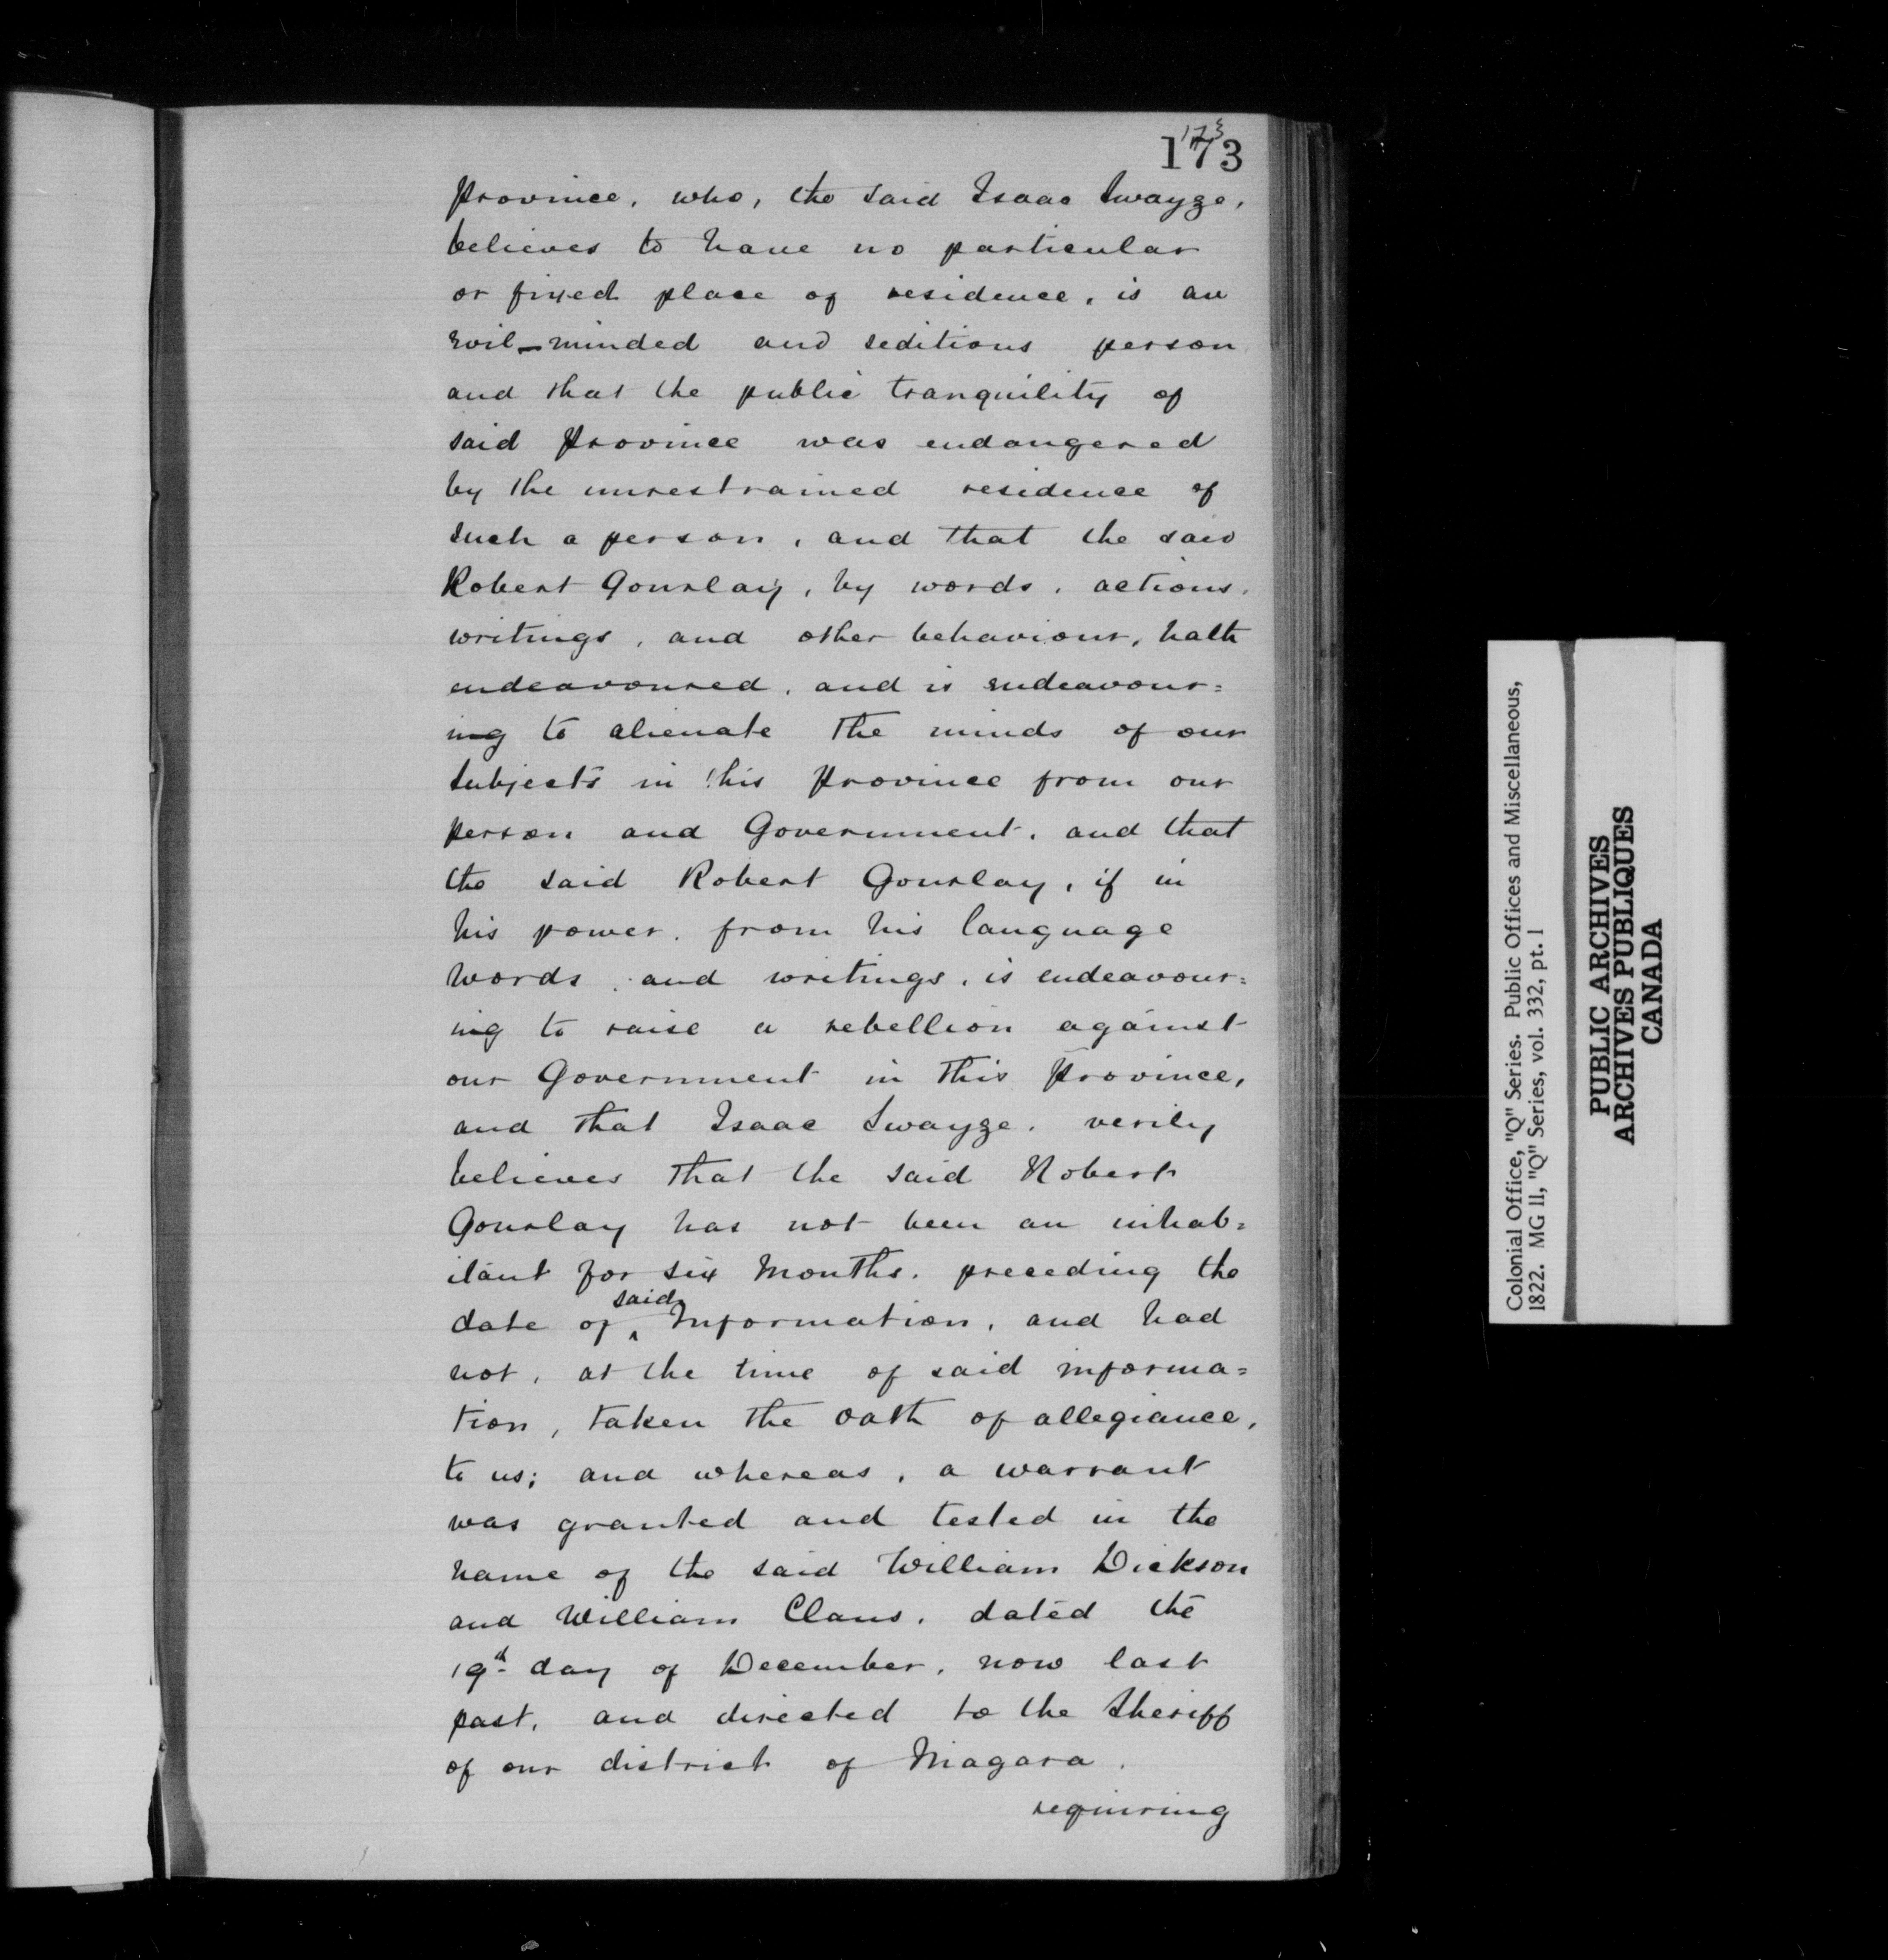 173
173
Province, who, the said Isaac Swayze,
believes to have no particular
or fixed place of residence, is an
evil-minded and seditious person
and that the public tranquility of
said Province was endangered
by the unrestrained residence of
such a person, and that the said
Robert Gourlay, by words, actions,
writings, and other behaviour, hath
endeavoured, and is endeavour=
ing to alienate the minds of our
subjects in this Province from our
person and Government, and that
the said Robert Gourlay, if in
his power, from his language
words, and writings, is endeavour=
ing to raise a rebellion against
our Government in this Province,
and that Isaac Swayze, verily
believes that the said Robert
Gourlay has not been an inhab=
itant for six months, preceding the
date of said Information, and had
not, at the time of said informa=
tion, taken the oath of allegiance,
to us; and whereas, a warrant
was granted and tested in the
name of the said William Dickson
and William Claus, dated the
19th day of December, now last
past, and directed to the Sheriff
of our district of Niagara,
requiring
Colonial Office, "Q" Series. Public Offices and Miscellaneous,
1822. MG 11, "Q" Series, vol. 332, pt. 1
PUBLIC ARCHIVES
ARCHIVES PUBLIQUES
CANADA